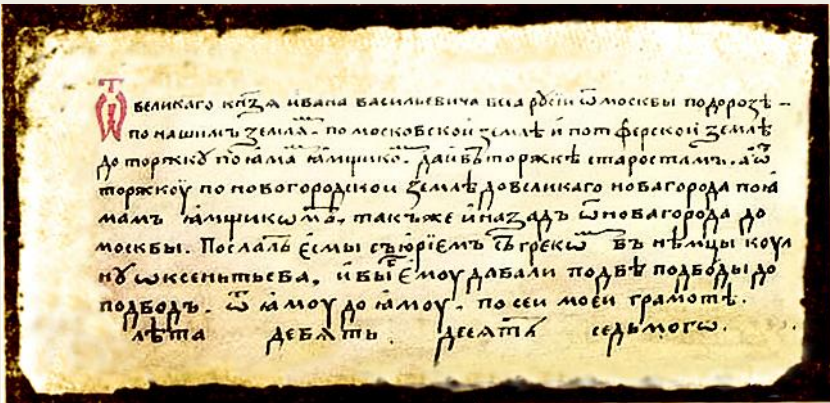 Ѿ великаго кнꙗзѧ ивана васильевича всеа рꙋсіи ѿ москвы по дорозѣ –
по нашимъ землѧм. по московскои землѣ и по тферскои землѣ
до торжкꙋ по ꙗмамъ ꙗмщикомъ. да и въ торжкѣ старостамъ. а ѿ
торжкоу по новогородскои землѣ до великаго новагорода по ꙗ
мамъ ꙗмщикѡмъ. такъже и назадъ ѿ новагорода до
москвы. Послалъ есмы съ юріемъ съ грекѡм въ нѣмцы коул
нꙋ ѡксентьева. и вы емоу давали подвѣ подводы до
подводъ. ѿ ꙗмоу до ꙗмоу. по сеи моеи грамотѣ.
лѣта девѧть десѧтъ седьмогѡ.